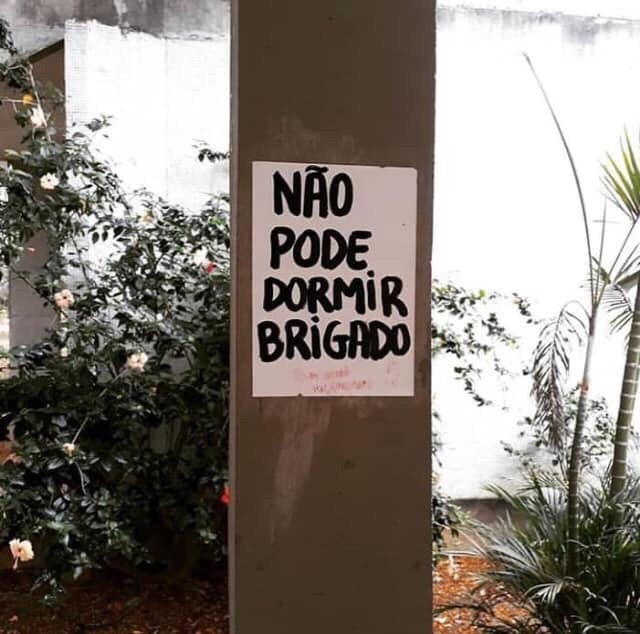 NÃO
PODE
DORMIR
BRIGADO